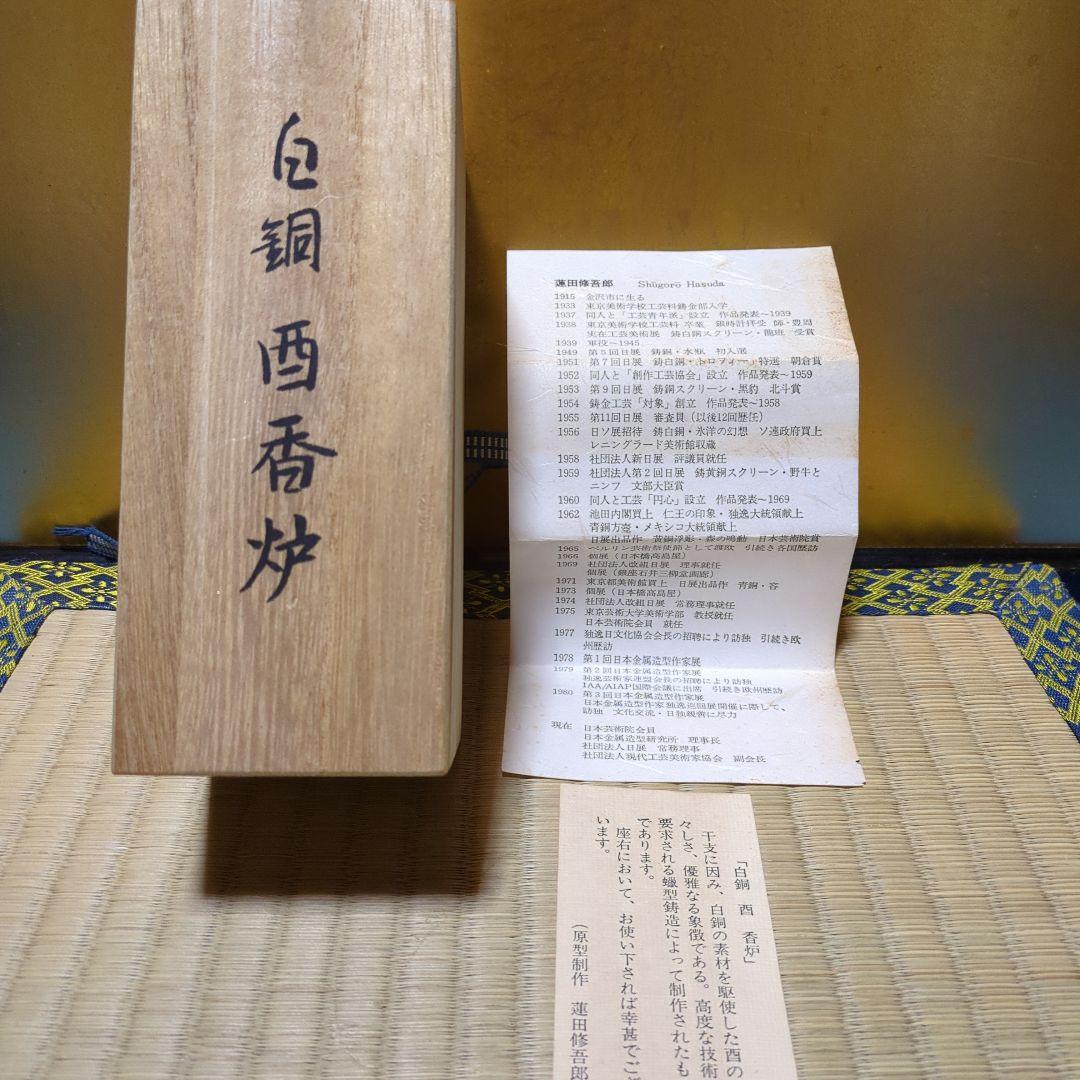 白銅 酉香炉
蓮田修吾郎 Shūgorō Hasuda
1915 金沢市に生る
1933 東京美術学校工芸科鋳金部入学
1937 同人と「工芸青年派」設立 作品発表〜1939
1938 東京美術学校工芸科 卒業 銀時計拝受 師・豊周
実在工芸美術展 鋳白銅スクリーン・龍班 受賞
1939 軍役〜1945
1949 第5回日展 鋳銅・水瓶 初入選
1951 第7回日展 鋳白銅・トロフィー 特選 朝倉賞
1952 同人と「創作工芸協会」設立 作品発表〜1959
1953 第9回日展 鋳銅スクリーン・黒豹 北斗賞
1954 鋳金工芸「対象」創立 作品発表〜1958
1955 第11回日展 審査員(以後12回歴任)
1956 日ソ展招待 鋳白銅・氷洋の幻想 ソ連政府買上
レニングラード美術館収蔵
1958 社団法人新日展 評議員就任
1959 社団法人第2回日展 鋳黄銅スクリーン・野牛と
ニンフ 文部大臣賞
1960 同人と工芸「円心」設立 作品発表〜1969
1962 池田内閣買上 仁王の印象・独逸大統領献上
青銅方壺・メキシコ大統領献上
日展出品作 黄銅浮彫・森の鳴動 日本芸術院賞
1965 ベルリン芸術祭使節として渡欧 引続き各国歴訪
1966 個展(日本橋高島屋)
1969 社団法人改組日展 理事就任
個展(銀座石井三柳堂画廊)
1971 東京都美術館買上 日展出品作 青銅・容
1973 個展(日本橋高島屋)
1974 社団法人改組日展 常務理事就任
1975 東京芸術大学美術学部 教授就任
日本芸術院会員 就任
1977 独逸日文化協会会長の招聘により訪独 引続き欧
州歴訪
1978 第1回日本金属造型作家展
1979 第2回日本金属造型作家展
独逸芸術家連盟会長の招聘により訪独
IAA/AIAP国際会議に出席 引続き欧州歴訪
1980 第3回日本金属造型作家展
日本金属造型作家独逸巡回展開催に際して、
訪独 文化交流・日独親善に尽力
現在 日本芸術院会員
日本金属造型研究所 理事長
社団法人日展 常務理事
社団法人現代工芸美術家協会 副会長
「白銅 酉 香炉」
干支に因み、白銅の素材を駆使した酉の
々しさ、優雅なる象徴である。高度な技術
要求される蠟型鋳造によって制作されたも
であります。
座右において、お使い下されば幸甚でご
います。
(原型制作 蓮田修吾郎